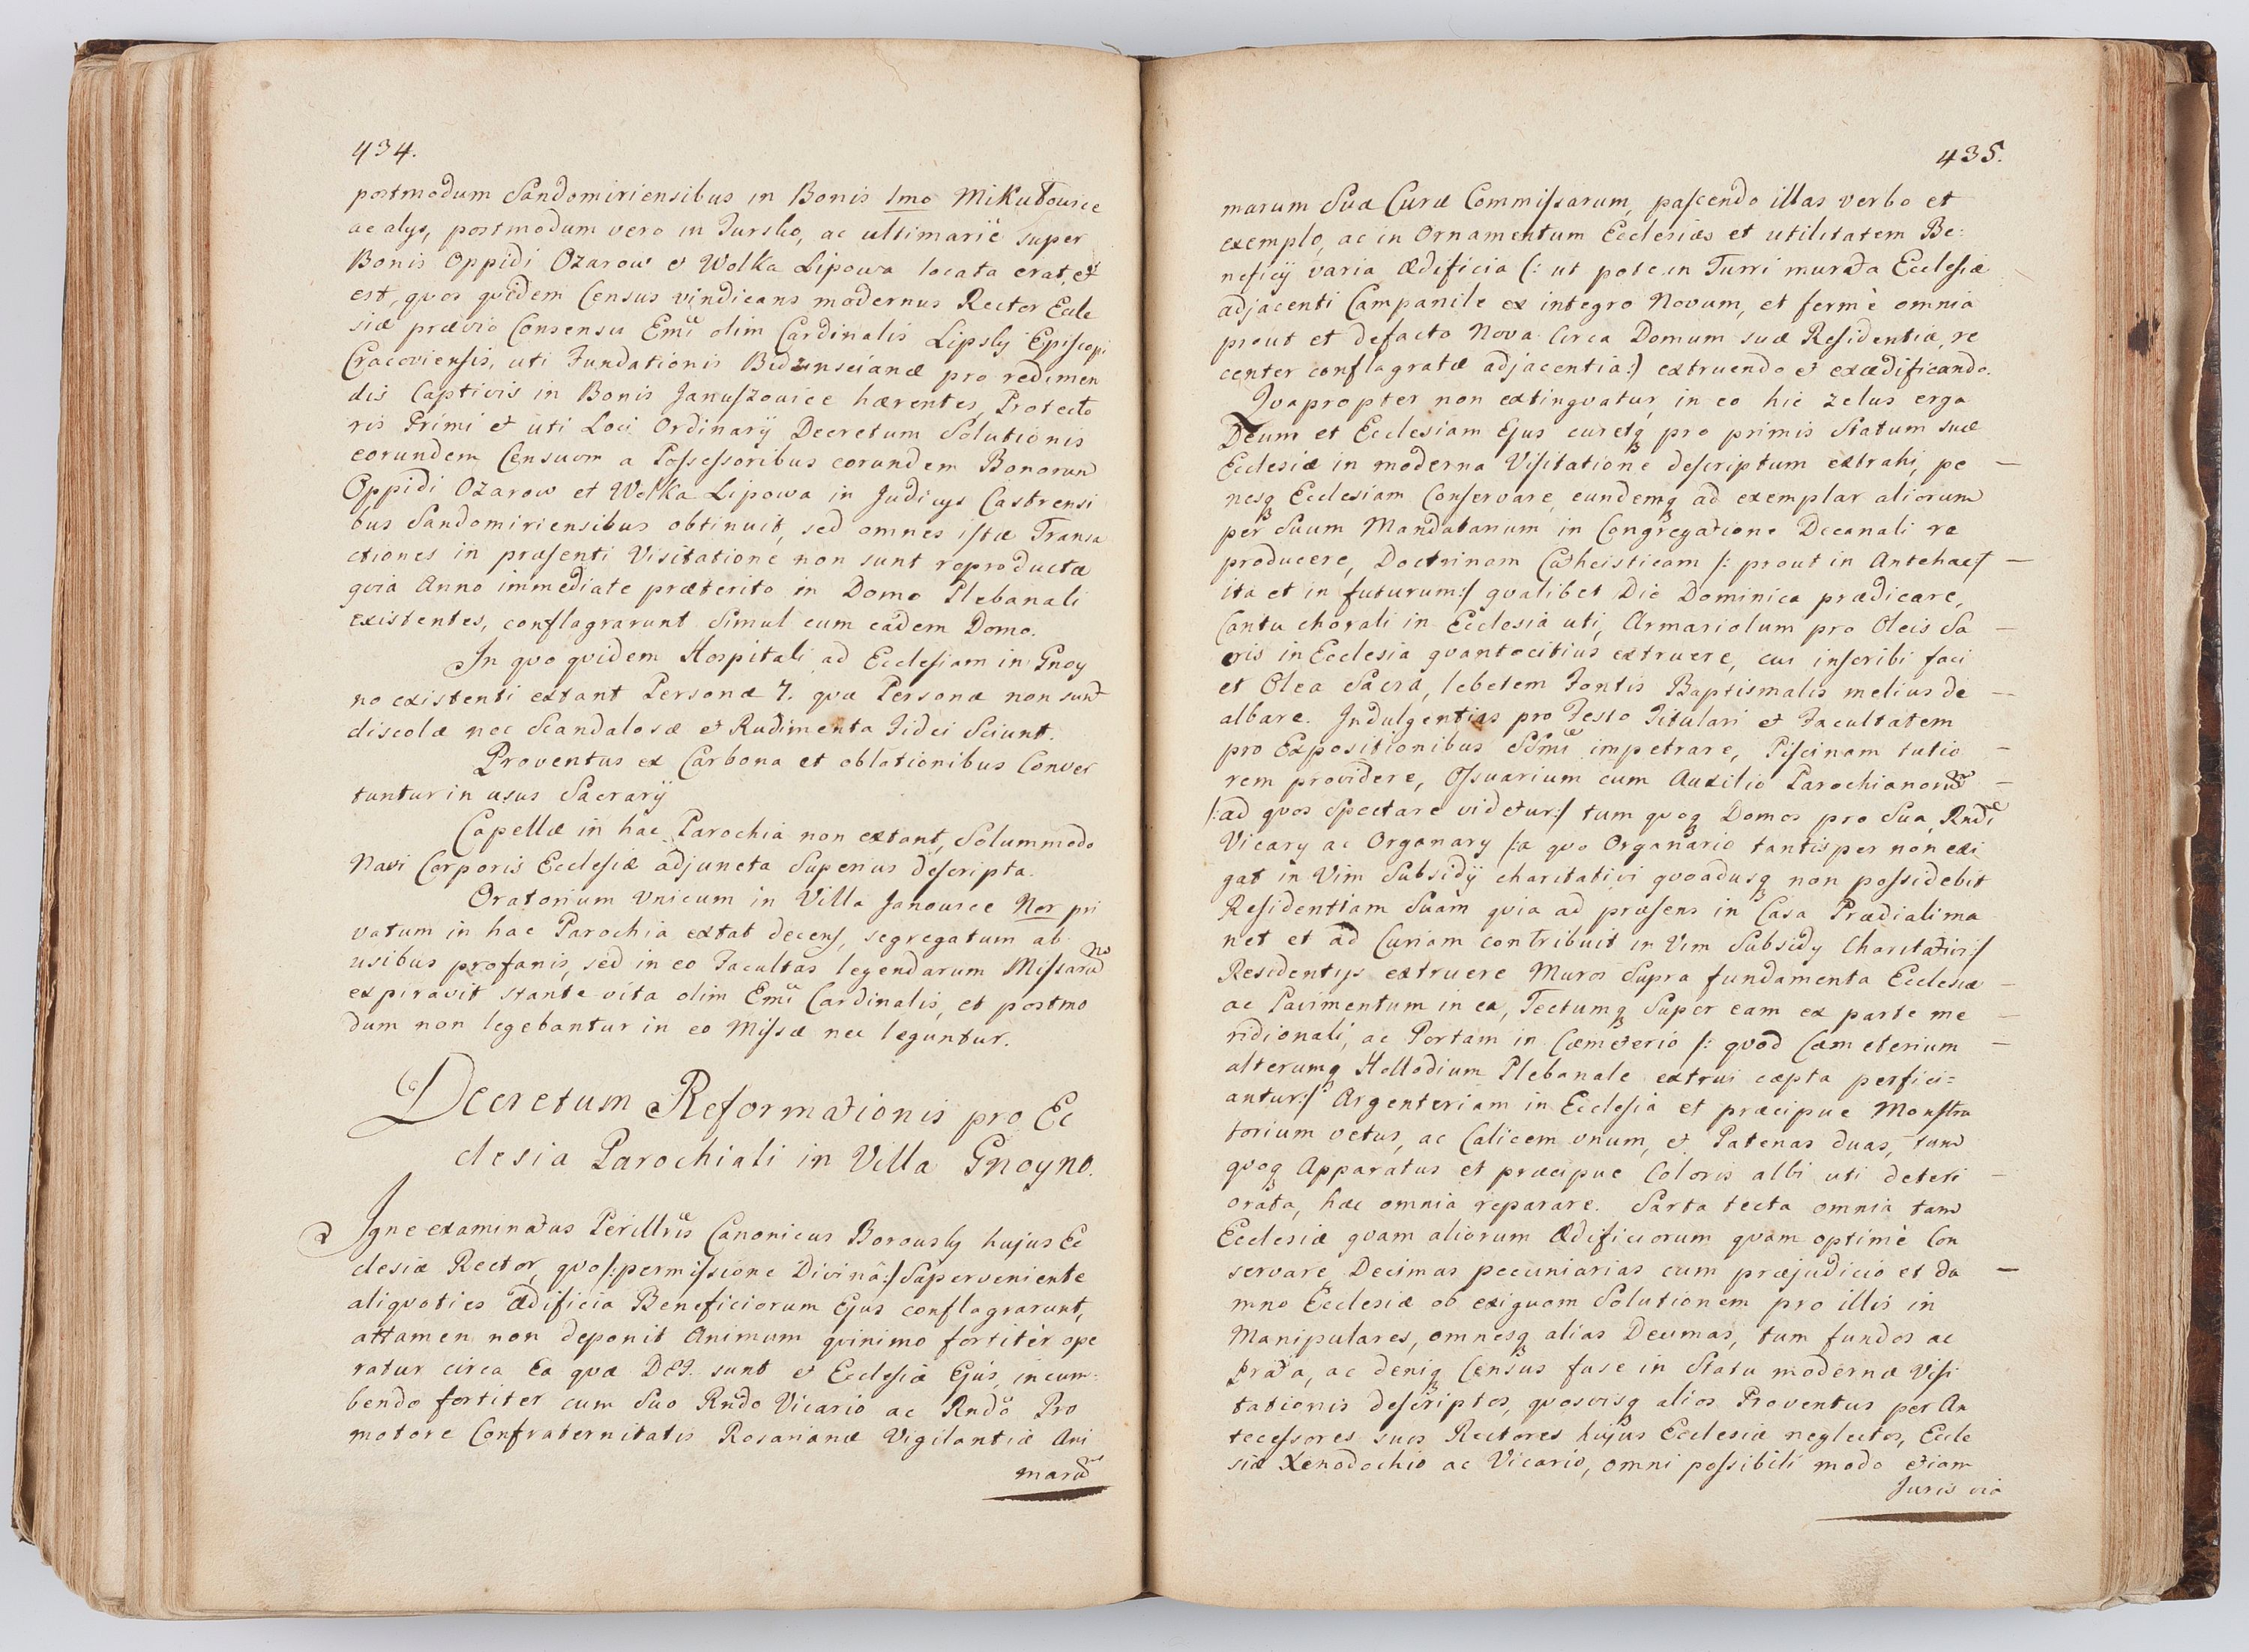 434.
postmodum Sandomiriensibus in Bonis 1mo Mikułowice
ac alys, postmodum vero in Tursko, ac ultimarie super
Bonis Oppidi Ozarow & Wolka Lipowa locata erat, et
est, quos quidem Census vindicans modernus Rector Eccle
siæ prævio Consensu Emi olim Cardinalis Lipsky Episcopi
Cracoviensis, uti Fundationis Bidzinscianæ pro redimen
dis Captivis in Bonis Januszowice hærentes, Protecto
ris Primi & uti Loci Ordinarij Decretum Solutionis
eorundem Censuum a Possessoribus eorundem Bonorum
Oppidi Ozarow et Wolka Lipowa in Judicys Castrensi
bus Sandomiriensibus obtinuit, sed omnes istæ Transa
ctiones in præsenti Visitatione non sunt reproductæ
quia Anno immediate præterito in Domo Plebanali
existentes, conflagrarunt Simul cum eadem Domo.
In quo quidem Hospitali ad Ecclesiam in Gnoy
no existenti extant Personæ 7. quæ Personæ non sunt
discolæ nec Scandalosæ & Rudimenta Fidei Sciunt.
Proventus ex Carbona et oblationibus Conver
tuntur in usus Sacrarij
Capellæ in hac Parochia non extant, Solummodo
Navi Corporis Ecclesiæ adjuncta Superius descripta.
Oratorium Unicum in Villa Janowice Nor pri
vatum in hac Parochia extat decens, segregatum ab
usibus profanis, sed in eo Facultas legendarum Missarum
expiravit stante vita olim Emi Cardinalis, et postmo
dum non legebantur in eo Missæ nec leguntur.
Decretum Reformationis pro Ec
clesia Parochiali in Villa Gnoyno.
Igne examinatus Perillris Canonicus Borowsky hujus Ec
clesiæ Rector, quo /:permissione Divina:/ Superveniente
aliquoties Ædificia Beneficiorum Ejus conflagrarunt,
attamen non deponit Animum quinimo fortiter ope
ratur circa Ea quæ DEI. sunt & Ecclesiæ Ejus, incum:
bendo fortiter cum Suo Rndo Vicario ac Rndo Pro
motore Confraternitatis Rosarianæ Vigilantiæ Ani
marum
435.
marum Suæ Curæ Commissarum, pascendo illas verbo et
exemplo, ac in Ornamentum Ecclesiæ et utilitatem Be:
neficij varia Ædificia (: ut pote in Turri murata Ecclesiæ
adjacenti Campanile ex integro Novum, et fermè omnia
prout et defacto Nova circa Domum suæ Residentiæ, re
center conflagratæ adjacentia:) extruendo & exædificando.
Quapropter non extinguatur in eo hic zelus erga
Deum et Ecclesiam Ejus curetq pro primis Statum suæ
Ecclesiæ in moderna Visitatione descriptum extrahi, pe —
nesq Ecclesiam Conservare, eundemq ad exemplar aliorum
per Suum Mandatarium in Congregatione Decanali re
producere, Doctrinam Cathecisticam /: prout in Antehac/ —
ita et in futurum:/ qualibet Die Dominica prædicare,
Cantu chorali in Ecclesia uti, Armariolum pro Oleis Sa —
cris in Ecclesia quantocitius extruere, cui inscribi faci
et Olea Sacra, lebetem Fontis Baptismalis melius de —
albare. Indulgentias pro Festo Titulari & Facultatem
pro Expositionibus SSmi impetrare, Piscinam tutio —
rem providere, Ossuarium cum Auxilio Parochianorum —
/:ad quos Spectare videtur:/ tum quoq Domos pro Sua, Rndi
Vicary ac Organary /:a quo Organario tantisper non exi
gat in Vim Subsidij charitativi quoadusq non possidebit
Residentiam Suam quia ad præsens in Casa Prædiali ma
net et ad Curiam contribuit in Vim Subsidy Charitativi:/
Residentys extruere Muros Supra fundamenta Ecclesiæ —
ac Pavimentum in ea, Tectumq Super eam ex parte me —
ridionali, ac Portam in Cæmeterio /: quod Cæmeterium —
alterumq Hallodium Plebanale extrui cæpta perfici=
antur:/ Argenteriam in Ecclesia et præcipue Monstra
torium vetus, ac Calicem unum, & Patenas duas, tum
quoq Apparatus et præcipue Coloris albi uti deteri —
orata, hæc omnia reparare. Sarta tecta omnia tam
Ecclesiæ quam aliorum Ædificiorum quam optimè Con
servare, Decimas pecuniarias cum præjudicio et da —
mno Ecclesiæ ob exiguam Solutionem pro illis in
Manipulares, omnesq alias Decimas, tum fundos ac
prata, ac deniq Census fuse in Statu modernæ Visi
tationis descriptos, quosvisq alios Proventus per An
tecessores suos Rectores hujus Ecclesiæ neglectos, Eccle
siæ Xenodochio ac Vicario, omni possibili modo etiam
Juris via